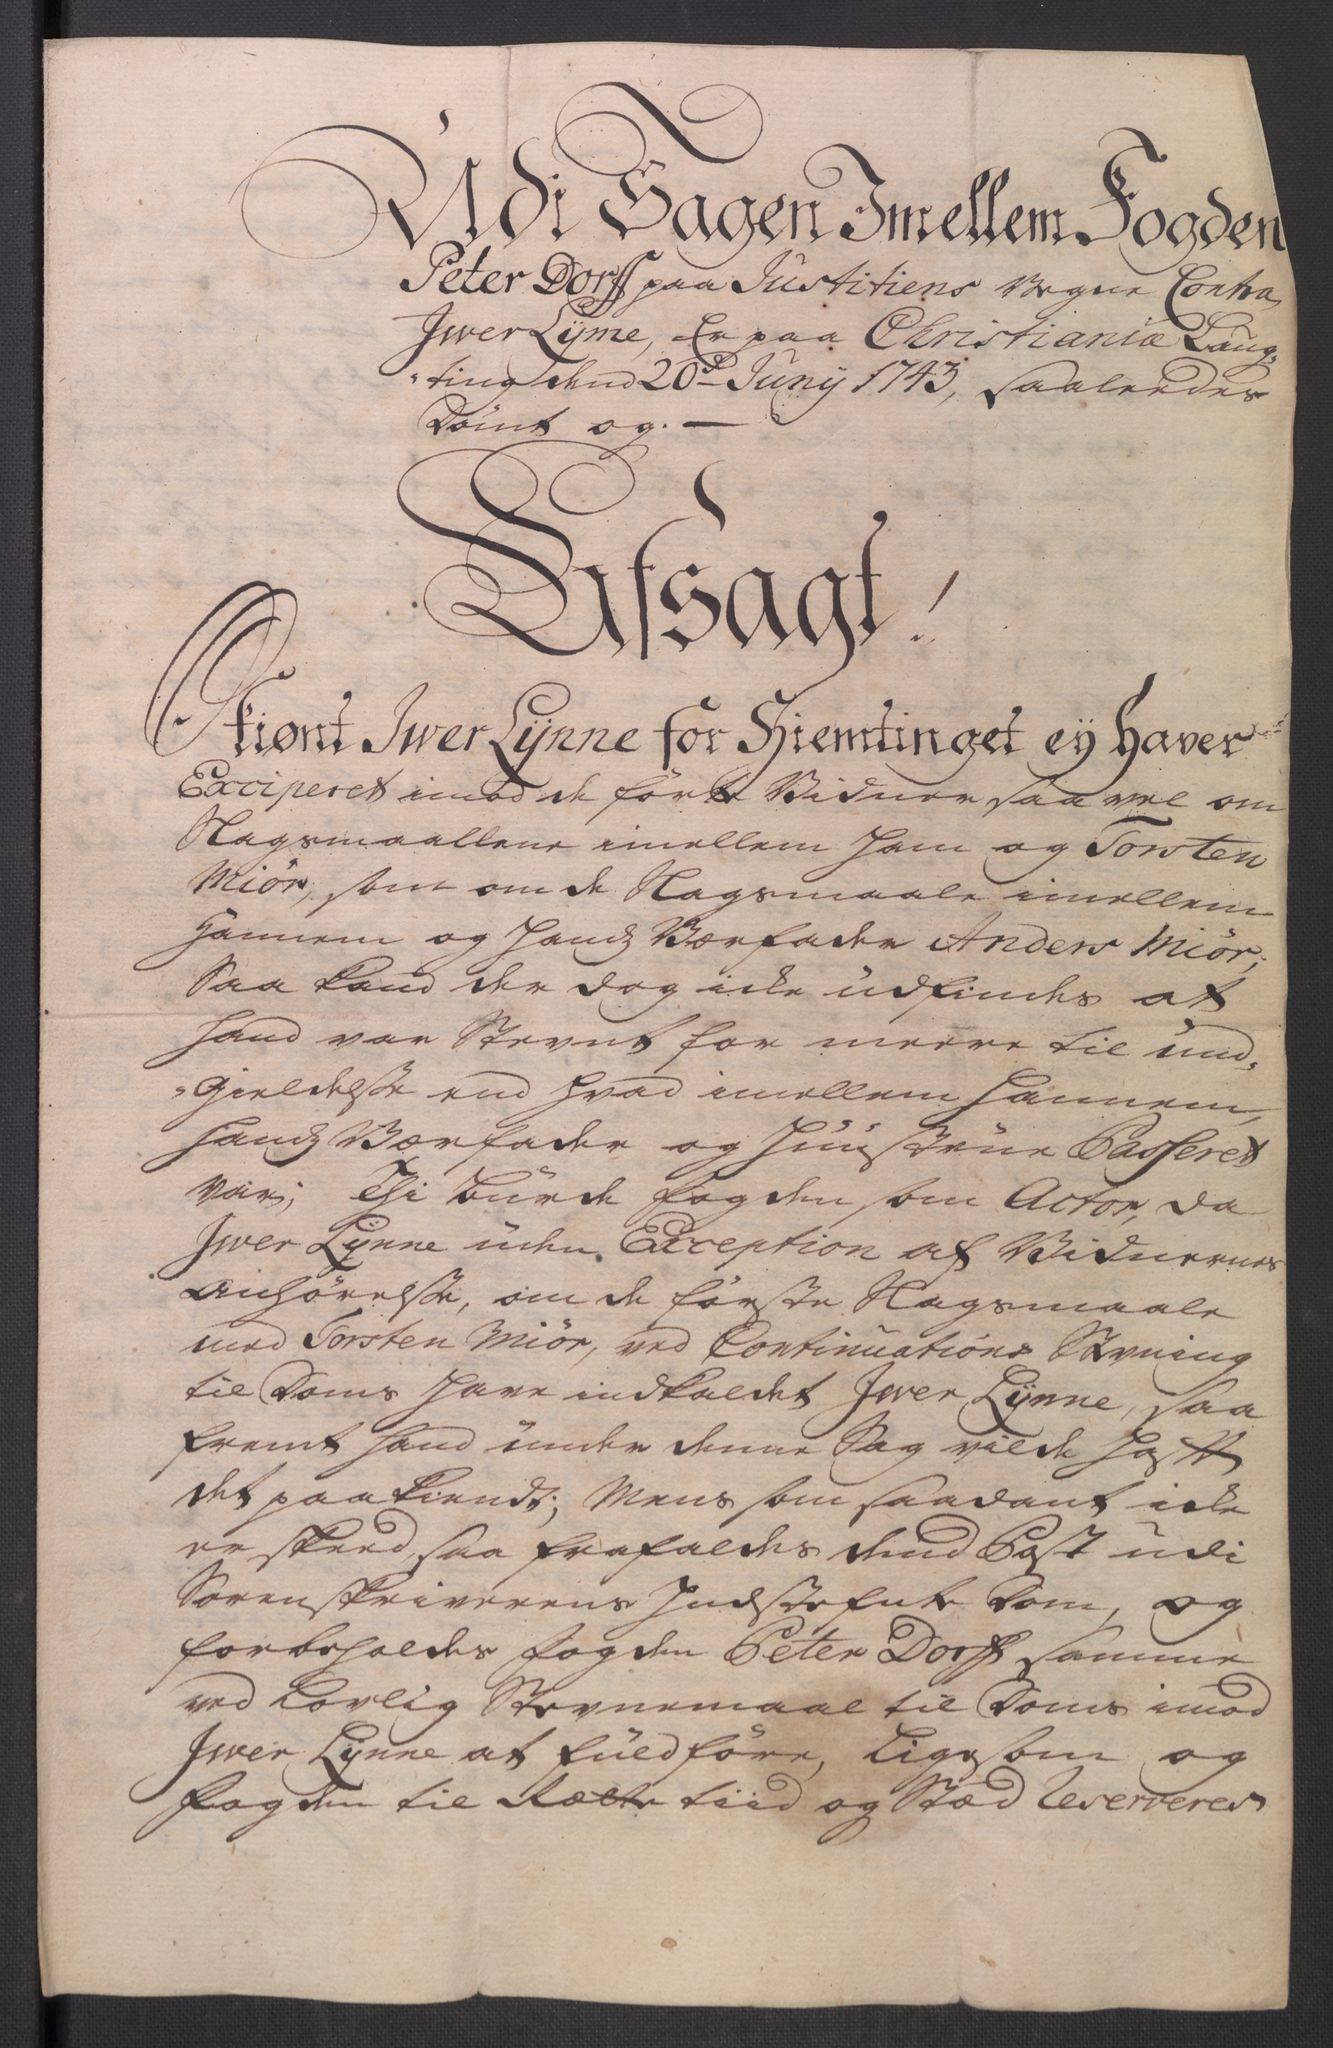 Udi Sagen Imellem Fogden
Peter Dorff paa Justitiens Vegne Contra
Iwer Lÿnne, Er paa Christianiæ Laug-
-ting dend 20de Junÿ 1743, saaleedes
Dömt og. —
Afsagt!
Skiønt Iwer Lÿnne for Hiemtinget eÿ haver
Exciperet imod de förte Vidner saa vel om
Slagsmaallene imellem ham og Torsten
Miör, som om de Slagsmaale imellem
Hannem og hands Værfader Anders Miör;
Saa kand der dog icke udfindes at
hand var Stevnt for meere til und-
-gieldelsse end hvad imellem hannem,
hands Værfader og Huustrue Passeret
var; Thi burde fogden som Actor, da
Iwer Lÿnne uden Exception af Vidnernes
anhörelsse, om de förste Slagsmaale
med Torsten Miör, ved Continuations Stevning
til Doms have indkaldet Iwer Lÿnne, saa
fremt hand under denne Sag vilde hafft
det paakiendt; Mens som saadant icke
er skeed, saa frafaldes dend Post udi
Sorenskriverens Indstefnte Dom, og
forbeholdes fogden Peter Dorff samme
ved Lovlig Stevnemaal til Doms imod
Iwer Lÿnne at fuldföre, Ligesom og
fogden til Rætte tiid og Stæd Reserveres